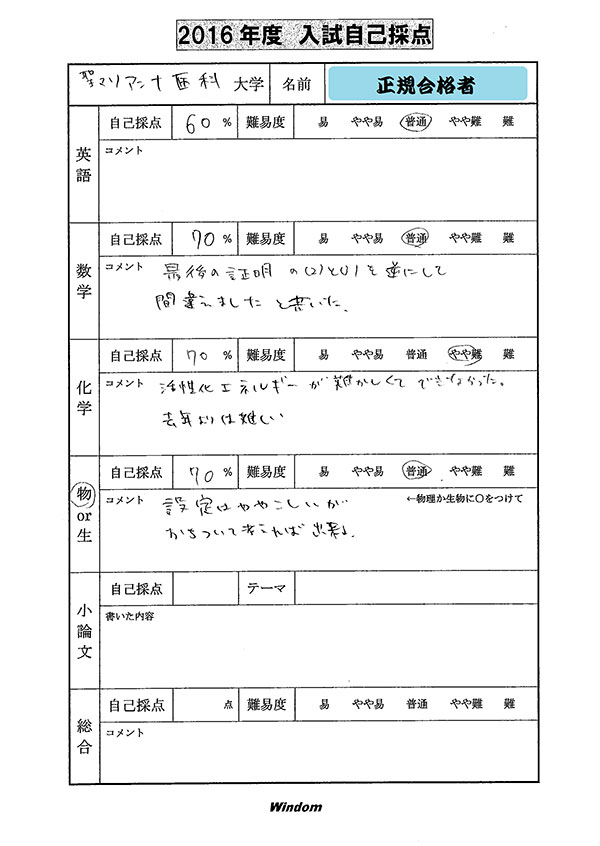 2016年度 入試自己採点
聖マリアンナ医科 大学 名前 正規合格者
英語
自己採点 60 % 難易度 易 やや易 普通 やや難 難
コメント
数学
自己採点 70 % 難易度 易 やや易 普通 やや難 難
コメント 最後の証明の(2)と(1)を逆にして
間違えましたと書いた。
化学
自己採点 70 % 難易度 易 やや易 普通 やや難 難
コメント 活性化エネルギーが難かしくてできなかった。
去年よりは難しい
物or生
自己採点 70 % 難易度 易 やや易 普通 やや難 難
コメント ←物理か生物に〇をつけて
設定はややこしいが
おちついて考えれば出来る。
小論文
自己採点 テーマ
書いた内容
総合
自己採点 点 難易度 易 やや易 普通 やや難 難
コメント
Windom